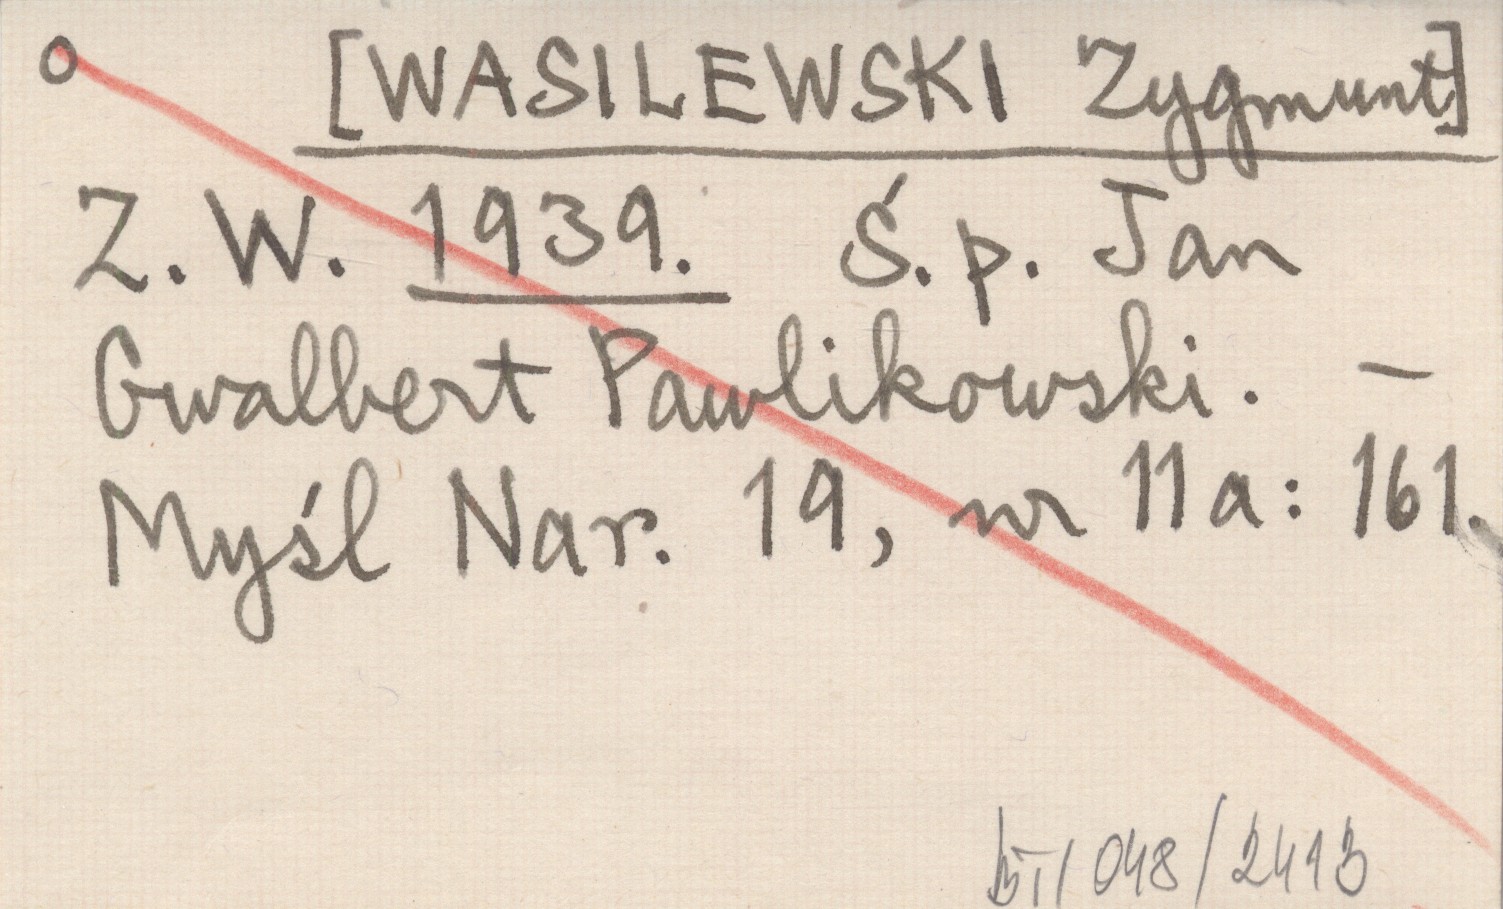 o [WASILEWSKI Zygmunt]
Z. W. 1939. Ś. p. Jan
Gwalbert Pawlikowski. –
Myśl Nar. 19, nr 11a: 161.
048/2413